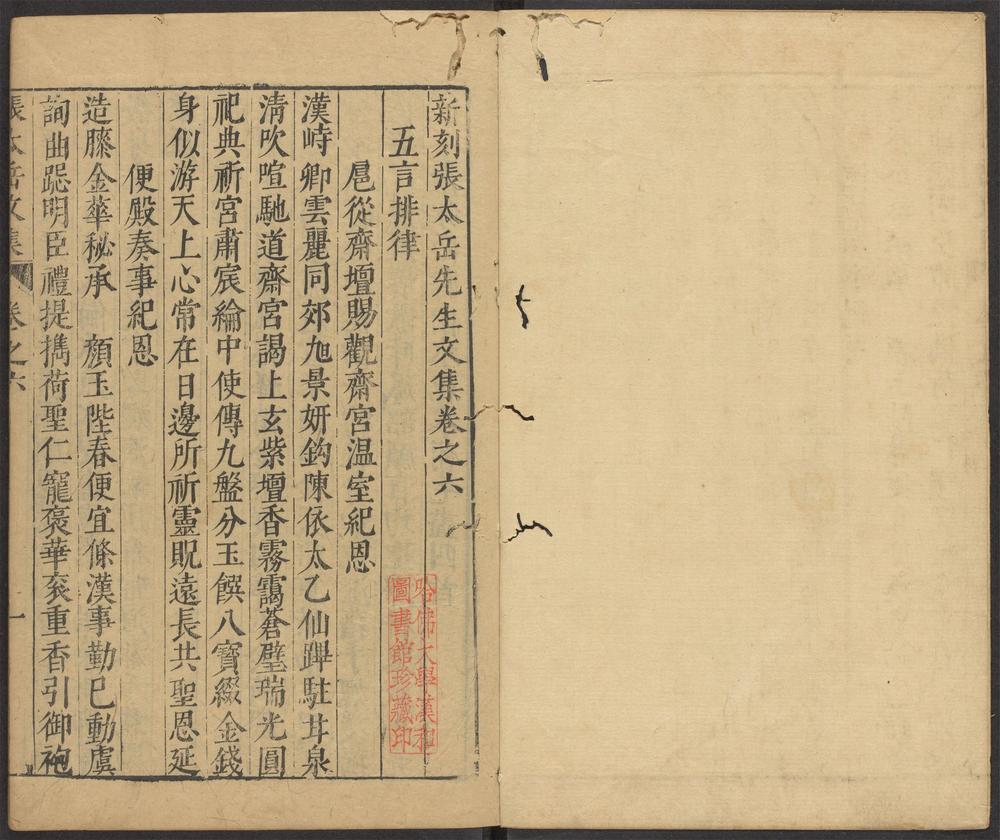 新刻張太岳先生文集卷之六
五言排律
扈從齋壇賜觀齋宮温室紀恩
漢畤卿雲麗同郊旭景妍鈎陳依太乙仙蹕駐甘泉
清吹喧馳道齋宮謁上玄紫壇香霧靄蒼璧瑞光圓
祀典祈宮肅宸綸中使傳九盤分玉饌八寳綴金錢
身似游天上心常在日邊所祈靈貺遠長共聖恩延
便殿奏事紀恩
造膝金華秘承 顏玉陛春便宜條漢事勤巳動虞
詢曲跽明臣禮提擕荷聖仁寵褒華衮重香引御袍
張太岳文集 卷之六 一
哈佛大學漢和
圖書館珍藏印